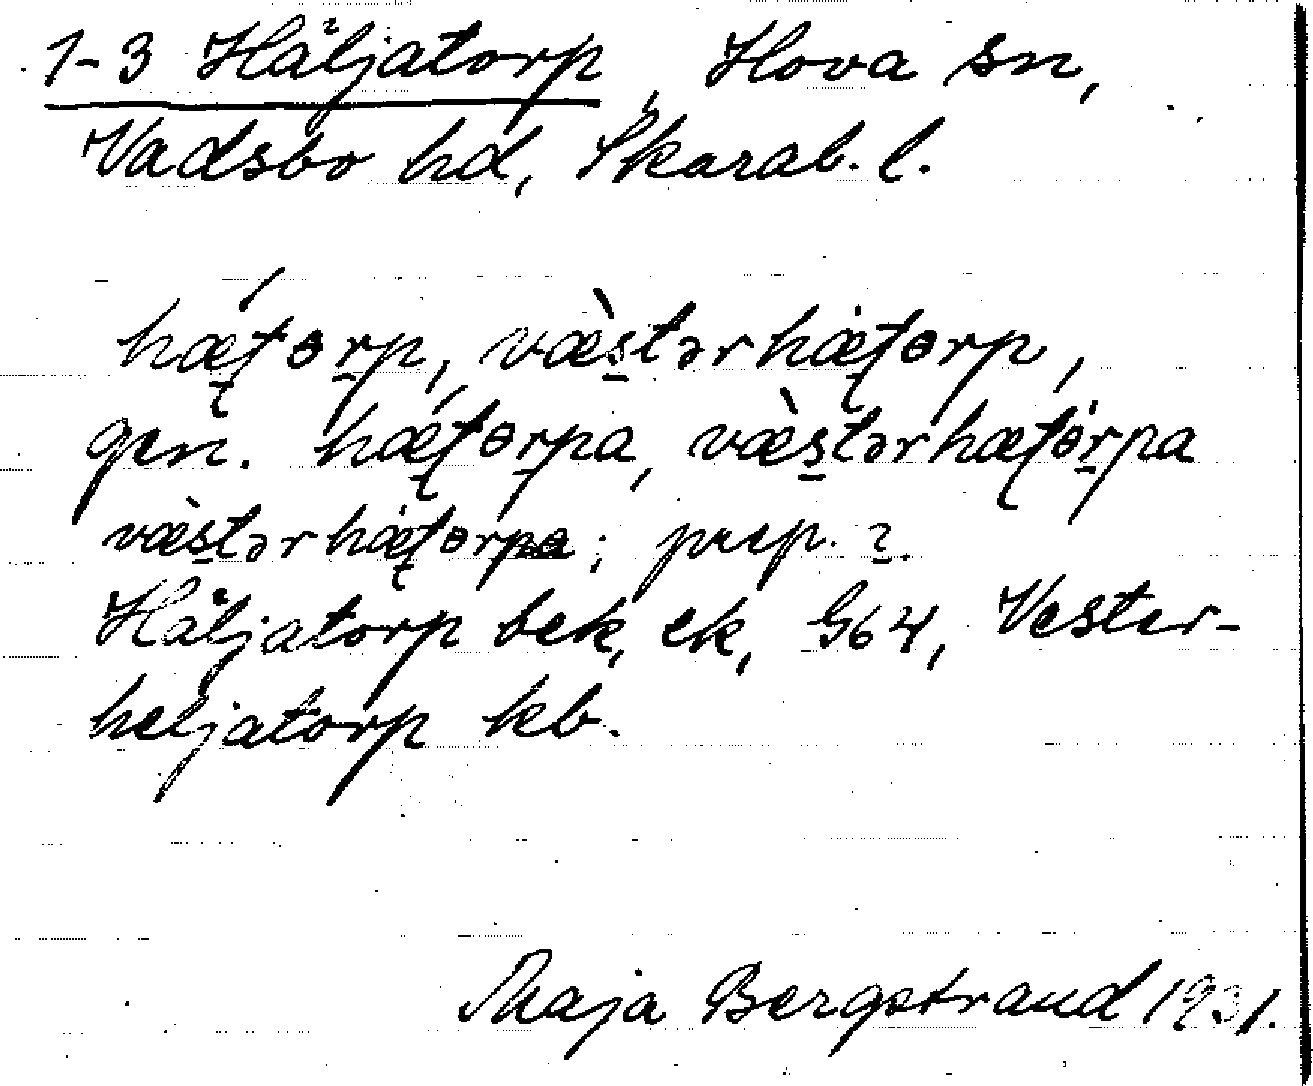 1-3 Häljatorp, Hova sn,
Vadsbo hd, Skarab. l.
hǽtɵrp, væ̀stərhætɵrp,
gen. hǽtɵrpa, væ̀stərhætɵrpa
væ̀stərhætɵrpa; prep. 2.
Häljatorp bek, ek, G64, Vester-
heljatorp kb.
Maja Bergstrand 1931.